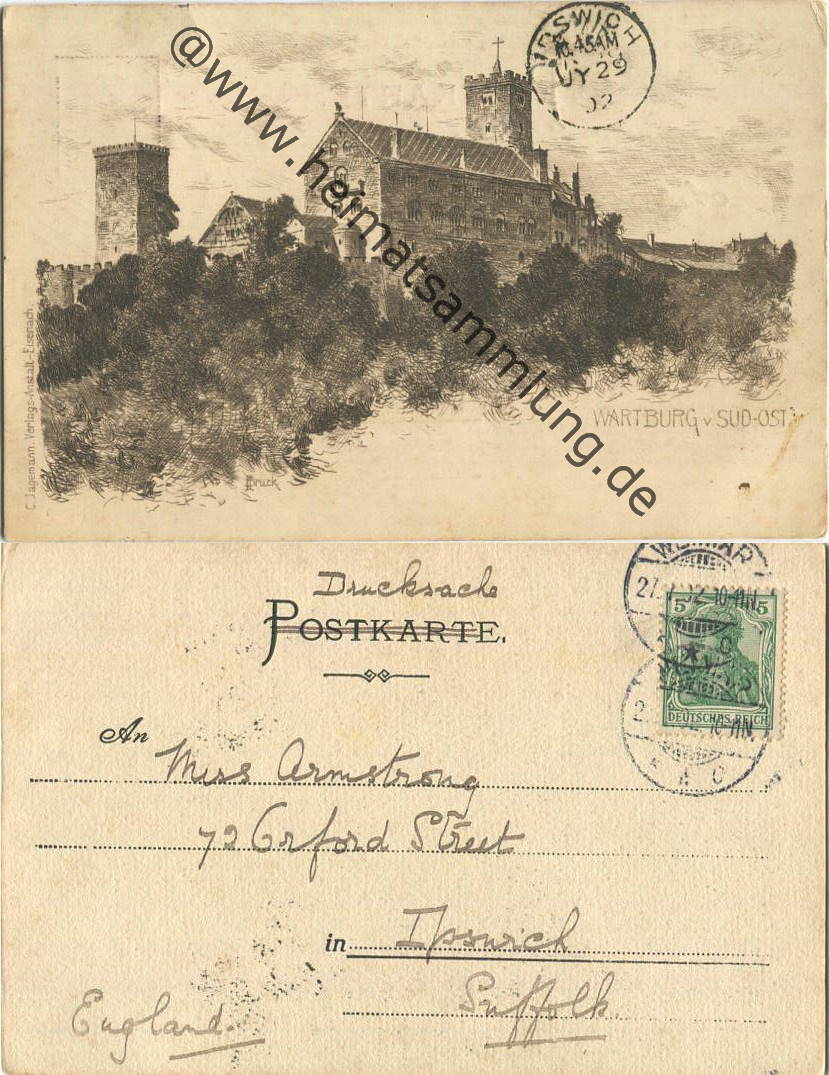 IPSWICH
10.45AM
JY 29
02
@www.heimatsammlung.de
C. Jagemann. Verlags-Anstalt.-Eisenach.
WARTBURG v. SÜD-OST.
Druck
Drucksache
POSTKARTE.
WEIMAR
5 5
DEUTSCHES REICH
An Miss Armstrong
72 Orford Street
in Ipswich
Suffolk.
England.